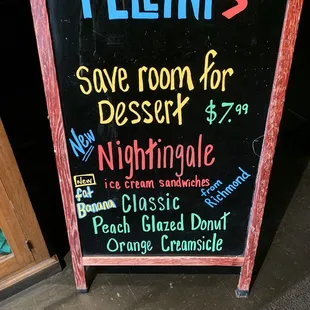 FELLINI'S
save room for
Dessert $7.99
New
Nightingale
ice cream sandwiches
from Richmond
New
fat
Banana
Classic
Peach Glazed Donut
Orange Creamsicle